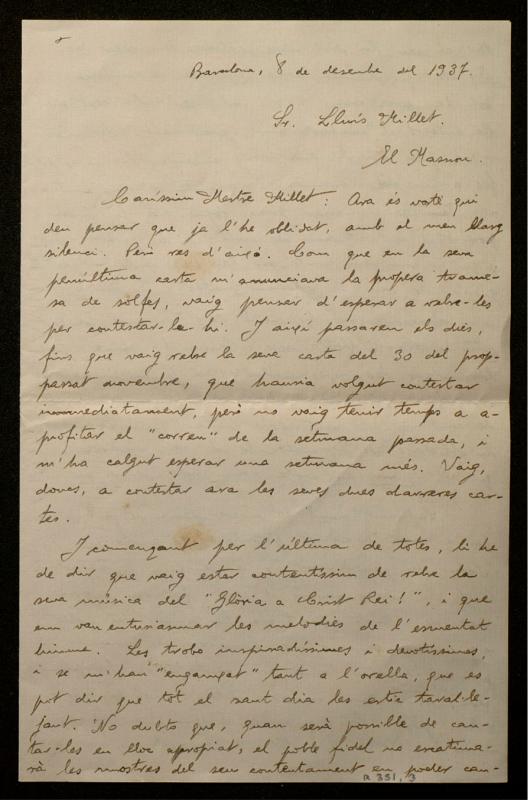 Barcelona, 8 de desembre del 1937.
Sr. Lluís Millet.
El Masnou.
Caríssim Mestre Millet: Ara és vostè qui
deu pensar que ja l'he oblidat, amb el meu llarg
silenci. Però res d'això. Com que en la seva
penúltima carta m'anunciava la propera trame-
sa de sòlfes, vaig pensar d'esperar a rebre-les
per contestar-la-hi. I així passaren els dies,
fins que vaig rebre la seva carta del 30 del prop-
passat novembre, que hauria volgut contestar
immediatament, però no vaig tenir temps a a-
profitar el "correu" de la setmana passada, i
m'ha calgut esperar una setmana més. Vaig,
doncs, a contestar ara les seves dues darreres car-
tes.
I començant per l'última de totes, li he
de dir que vaig estar contentíssim de rebre la
seva música del "Glòria a Crist Rei!", i que
em van entusiasmar les melodies de l'esmentat
himne. Les trobo inspiradíssimes i devotíssimes,
i se m'han "enganxat" tant a l'orella, que es
pot dir que tot el sant dia les estic taral·le-
jant. No dubto que, quan serà possible de can-
tar-les en lloc apropiat, el poble fidel no escatima-
rà les mostres del seu contentament en poder can-
R 351, 3